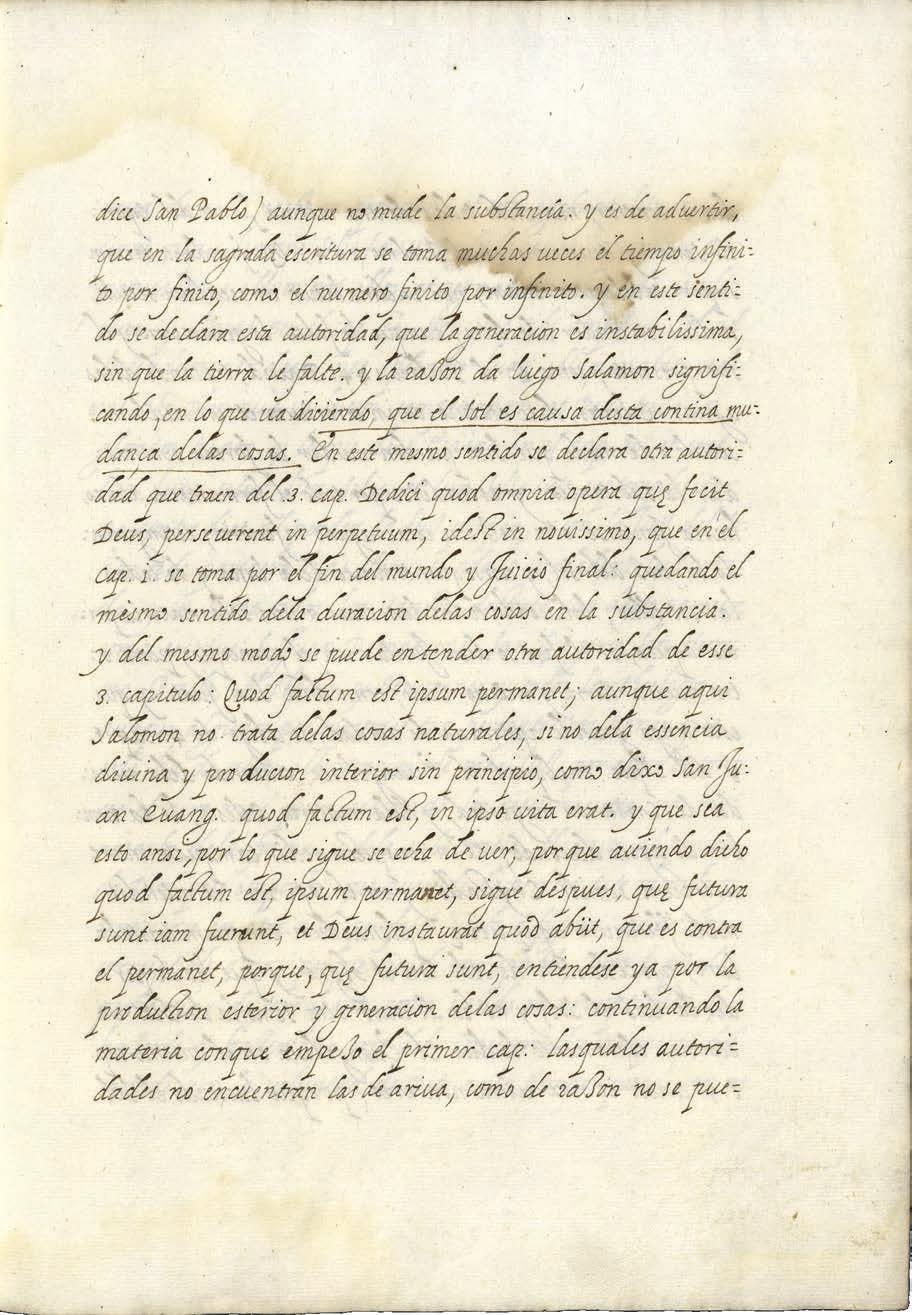 dice San Pablo) aunque no mude la substancia. y es de advertir,
que en la sagrada escritura se toma muchas veces el tiempo infini-
to por finito, como el numero finito por infinito. y en este senti-
do se declara esta autoridad, que la generacion es instabilissima,
sin que la tierra le falte. y la raẞon da luego Salamon signifi-
cando, en lo que va diciendo, que el Sol es causa desta contina mu-
dança delas cosas. En este mesmo sentido se declara otra autori-
dad que traen del 3. cap. Dedici quod omnia opera quę fecit
Deus, perseverent in perpetuum, idest in novissimo, que en el
Cap. i. se toma por el fin del mundo y Juicio final: quedando el
mesmo sentido dela duracion delas cosas en la substancia.
y del mesmo modo se puede entender otra autoridad de esse
3. capitulo: Quod factum est ipsum permanet; aunque aqui
Salomon no trata delas cosas naturales, sino dela essencia
divina y producion interior sin principio, como dixo San Ju-
an Evang. quod factum est, in ipso vita erat. y que sea
esto ansi, por lo que sigue se echa de ver, porque aviendo dicho
quod factum est, ipsum permanet, sigue despues, quę futura
sunt iam fuerunt, et Deus instaurat quod abiit, que es contra
el permanet, porque, quę futura sunt, entiendese ya por la
production esterior y generacion delas cosas: continuando la
materia conque empeẞo el primer cap: lasquales autori-
dades no encuentran las de ariva, como de raẞon no se pue-